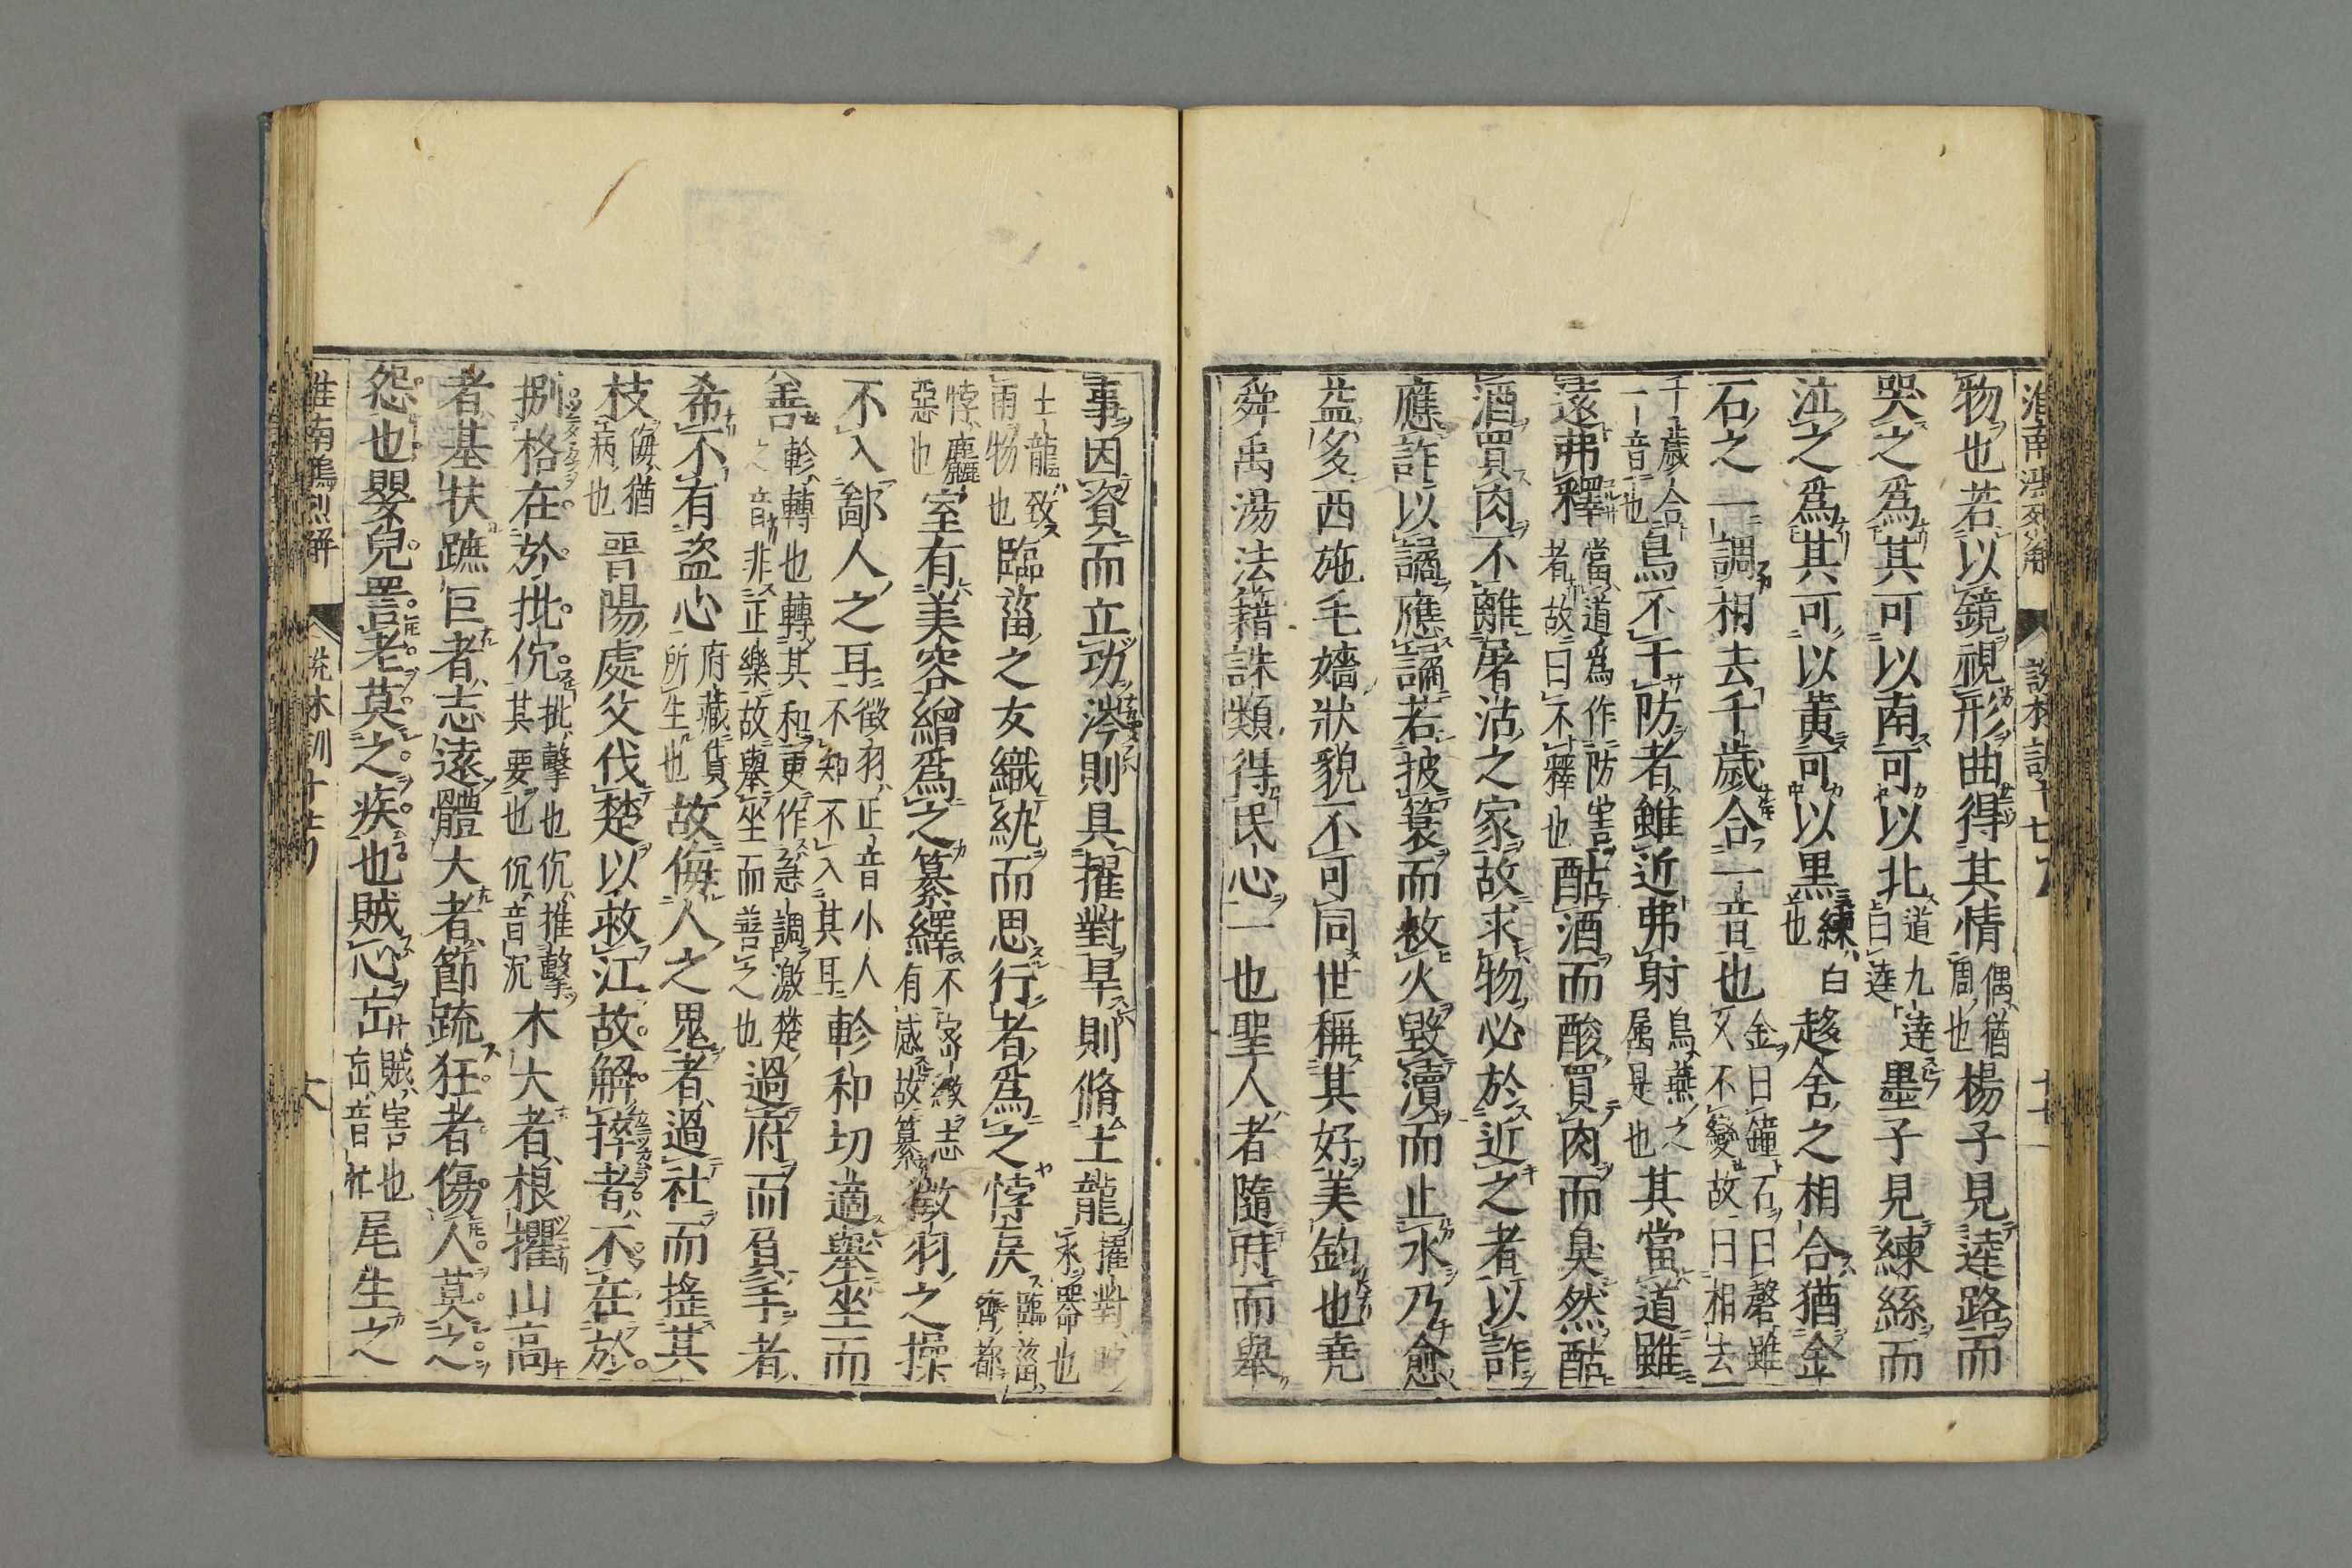 物也若以鏡視形曲得其情偶猶周也楊子見逵路而
哭之為其可以南可以北道九達曰逵墨子見練絲而
泣之為其可以黃可以黒練白也趍舍之相合猶金
石之一調相去千歲合一音也金曰鐘石曰磬雖久不變故曰相去
千歲合一音也鳥不干防者雖近弗射鳥燕之属是也其當道雖
遠弗釋當道為作防害者故曰不釋也酤酒而酸買肉而臭然酤
酒買肉不離屠沽之家故求物必於近之者以詐
應詐以譎應譎若披蓑而救火毀瀆而止水乃愈
益多西施毛嬙狀貌不可同世稱其好美鈞也堯
舜禹湯法籍誅類得民心一也聖人者隨時而舉
事因資而立功涔則具擢對旱則脩土龍擢對水器也
土龍致雨物也臨菑之女織紈而思行者為之悖戾臨菑齊都
悖麤惡也室有美容繒為之纂繹不密緻志有感故纂徵羽之操
不入鄙人之耳徵羽正音小人不知不入其耳軫和切適舉坐而
善軫轉也轉其和更作急調激楚之音非正樂故舉坐而善之也過府而負手者
希不有盜心府藏貨所生也故侮人之鬼者過社而搖其
枝侮猶病也晉陽處父伐楚以救江故解捽者不在於
捌格在於批伔批擊也伔推擊其要也伔音沉木大者根攫山高
者基扶蹠巨者志遠體大者節疏狂者傷人莫之
怨也嬰兒詈老莫之疾也賊心㤀賊害也㤀音忙尾生之